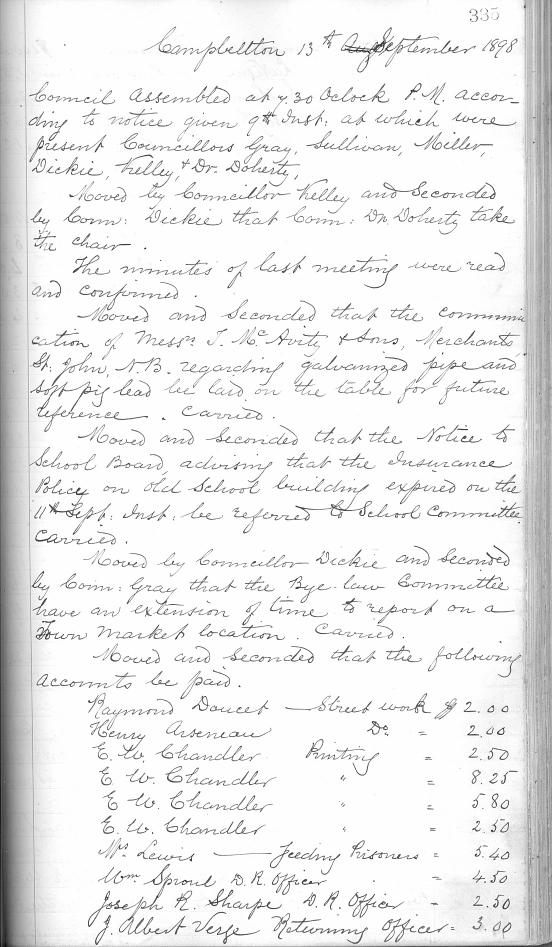 335
Campbellton 13th Aug September 1898
Council Assembled at 7.30 Oclock P.M. accor-
ding to notice given 9th Inst: at which were
present Councillors Gray, Sullivan, Miller,
Dickie, Kelley, & Dr. Doherty,
Moved by Councillor Kelley and Seconded
by Coun: Dickie that Coun: Dr. Doherty take
the chair.
The minutes of last meeting were read
and confirmed.
Moved and Seconded that the communi
cation of Messrs T. McAvity & Sons, Merchants
St. John, N.B. regarding galvanized pipe and
soft pig lead be laid on the table for future
reference. Carried.
Moved and Seconded that the Notice to
School Board, advising that the Insurance
Policy on old School building expired on the
11th Sept: Inst: be referred to School Committee.
Carried.
Moved by Councillor Dickie and Seconded
by Coun: Gray that the Bye-law Committee
have an extension of time to report on a
Town market location. Carried.
Moved and Seconded that the following
accounts be paid.
Raymond Doucet — Street work $ 2.00
Henry Arseneau Do. = 2.00
E. W. Chandler Printing = 2.50
E. W. Chandler " = 8.25
E. W. Chandler " = 5.80
E. W. Chandler " = 2.50
Mrs Lewis — feeding Prisoners = 5.40
Wm Sproul D. R. Officer = 4.50
Joseph R. Sharpe D. R. Officer - 2.50
J. Albert Verge Returning Officer = 3.00